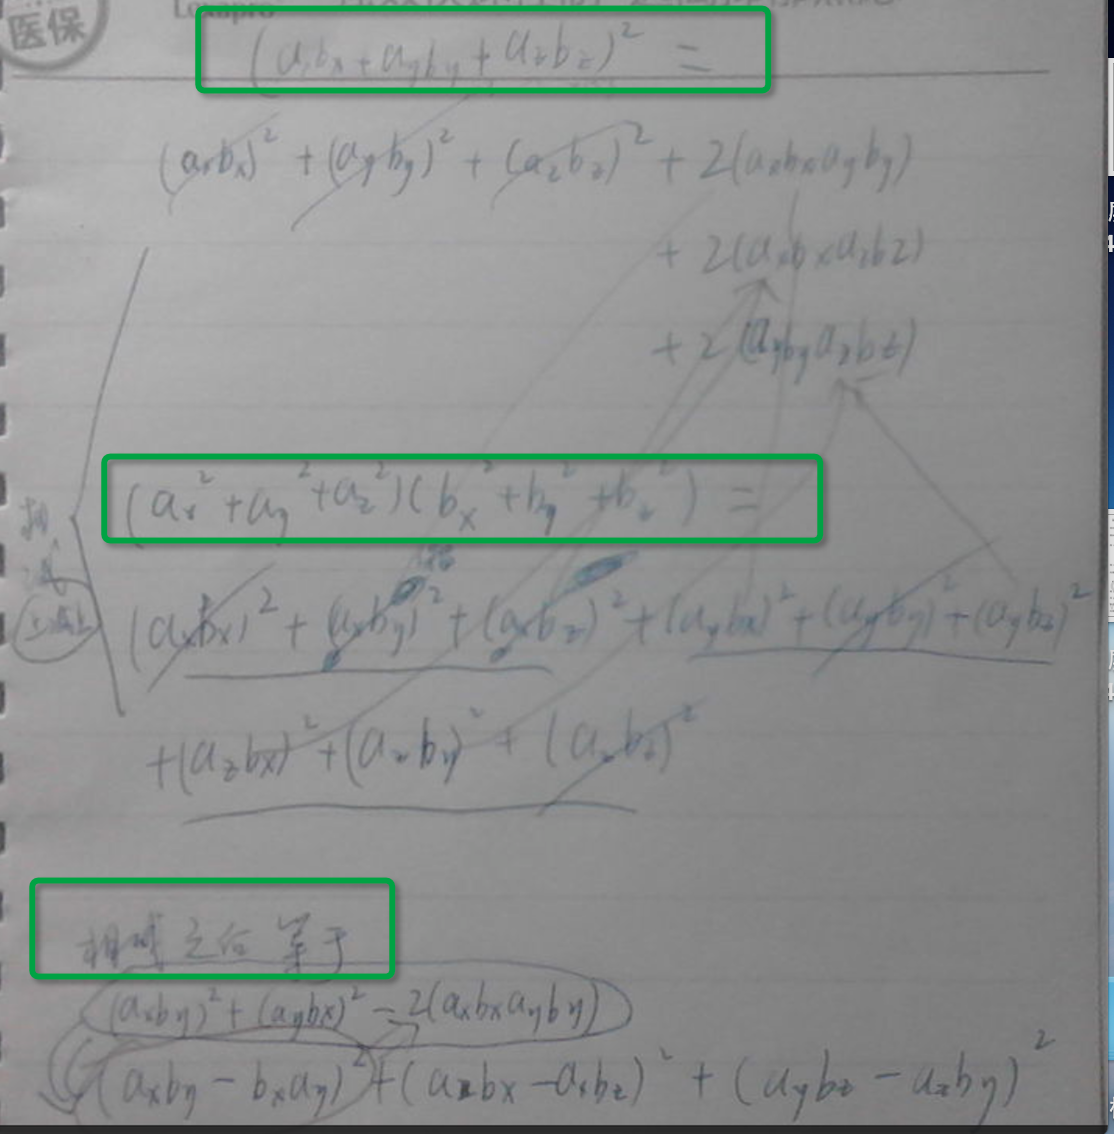 医保
Lexapro
(aₓbₓ+a_yb_y+a_zb_z)² =
(aₓbₓ)² + (a_yb_y)² + (a_zb_z)² + 2(aₓbₓa_yb_y)
+ 2(aₓbₓa_zb_z)
+ 2(a_yb_ya_zb_z)
(aₓ²+a_y²+a_z²)(bₓ²+b_y²+b_z²) =
相
减
(aₓbₓ)² + (aₓb_y)² + (aₓb_z)² + (a_ybₓ)² + (a_yb_y)² + (a_yb_z)²
+(a_zbₓ)² + (a_zb_y)² + (a_zb_z)²
相减之后等于
(aₓb_y)² + (a_ybₓ)² - 2(aₓbₓa_yb_y)
(aₓb_y - bₓa_y)² + (a_zbₓ - aₓb_z)² + (a_yb_z - a_zb_y)²